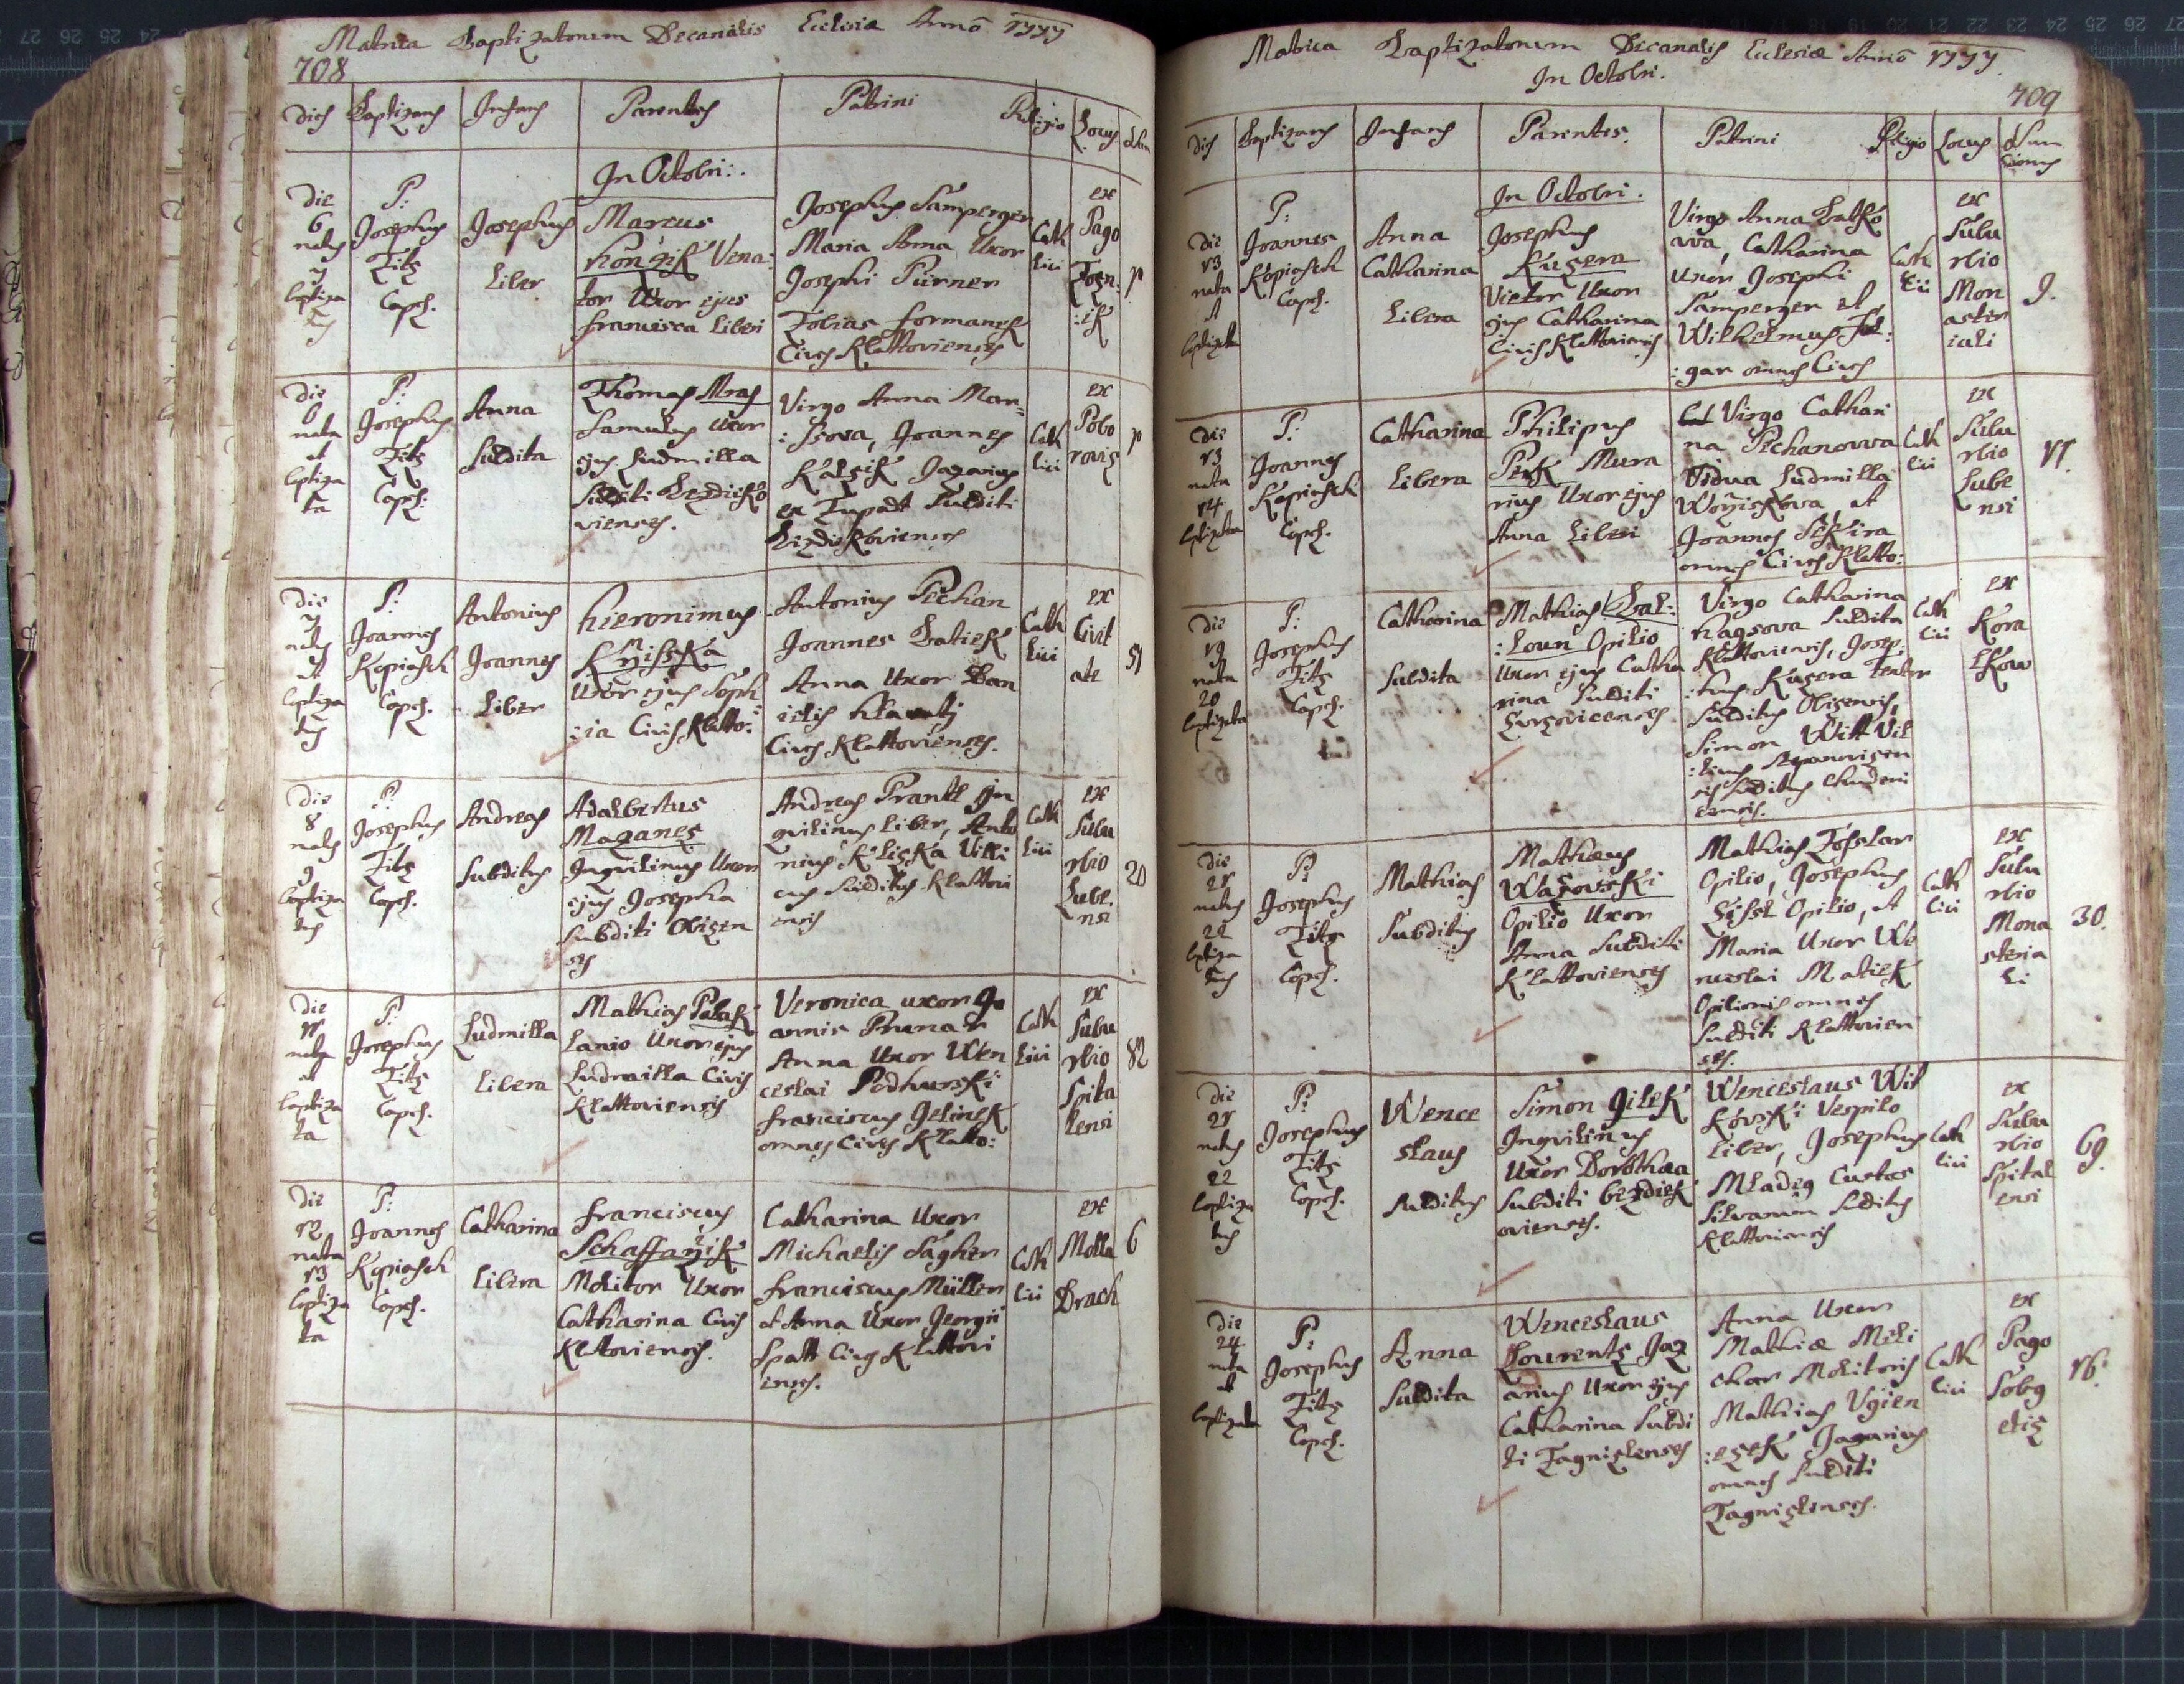 Matrica Baptizatorum Decanalis Ecclesiæ Annō 1777
708
Dies Baptizans Infans Parentes Patrini Religio Locus Num
In Octobri:
Die
6
natus
7
baptiza
tus
P:
Josephus
Titz
Capel.
Josephus
Liber
Marcus
Kongik Vena:
tor Uxor ejus
Francisca Liberi
Josephus Samperger
Maria Anna Uxor
Josephi Pürner
Tobias Formanek
Cives Klattovienses
Cath
lici
ex
Pago
1
Die
6
nata
et
baptiza
ta
P:
Josephus
Titz
Capel:
Anna
Subdita
Thomas Mras
Famulus uxor
ejus Ludmilla
Subditi Bezdieko
vienses.
Virgo Anna Mar=
Joannes
Kalsik Jazarius
ex Tupadt Subditi
Bezdiekovienses
Cath
lici
ex
Pobo
rovis
1
Die
7
natus
et
baptiza
tus
P:
Joannes
Kopiasch
Capel.
Antonius
Joannes
Liber
Hieronimus
Uxor ejus Soph
:ia Cives Klatto:
Antonius Pechan
Joannes Batiek
Anna Uxor Dan
ielis Hlawatj
Cives Klattovienses.
Cath
lici
ex
Civit
ate
51
Die
8
natus
9
baptiza
tus
P:
Josephus
Titz
Capel.
Andreas
Subditus
Adalbertus
Mazanes
Inqvilinus Uxor
ejus Josepha
Subditi Obizen
ses
Andreas Prantl Jn
qvilinus liber, Anto
nius Klizka Villi
cus Subditus Klattovi
ensis
Cath
lici
ex
Subu
rbio
Lube.
nsi
20
Die
11
nata
et
baptiza
ta
P:
Josephus
Titz
Capel.
Ludmilla
Libera
Mathias Palak
Lanio Uxor ejus
Ludmilla Cives
Klattovienses
Veronica uxor Jo
annis Prunar
Anna Uxor Wen
ceslai Podhurski
Franciscus Jelinek
omnes Cives Klatto:
Cath
lici
ex
Subu
rbio
Spita
lensi
82
Die
12
nata
13
baptiza
ta
P:
Joannes
Kopiasch
Capel.
Catharina
Libera
Franciscus
Schaffarzik
Molitor Uxor
Catharina Cives
Klattovienses.
Catharina Uxor
Michaelis Sagher
Franciscus Müller
et Anna Uxor Georgii
Spatt Cives Klattovi
enses.
Cath
lici
ex
Molla
Drach
6
Matrica Baptizatorum Decanalis Ecclesiæ Annō 1777
In Octobri.
709
Dies Baptizans Infans Parentes. Patrini Religio Locus Num
erus
In Octobri.
Die
13
nata
et
baptizata
P:
Joannes
Kopiasch
Capel.
Anna
Catharina
Libera
Josephus
Kuzera
Vietor Uxor
ejus Catharina
Cives Klattovienses
Virgo Anna Batko
wa, Catharina
uxor Josephi
Samperger et
Wilhelmus
:gar omnes Cives
Cath
lici
ex
Subu
rbio
Mon
aster
iali
9.
Die
13
nata
14
baptizata
P:
Joannes
Kopiasch
Capel.
Catharina
Libera
Philipus
Perk Mura
rius Uxor ejus
Anna Liberi
Virgo Cathari
na Pechanowa
Vidua Ludmilla
et
Joannes Sekira
omnes Cives Klatto:
Cath
lici
ex
Subu
rbio
Lube
nsi
11.
Die
19
nata
20
baptizata
P:
Josephus
Titz
Capel.
Catharina
Subdita
Mathias Bal:
:loun Opilio
Uxor ejus Catha
rina Subditi
Virgo Catharina
Subdita
Klattoviensis, Josep:
:hus Kuzera
Subditus Obizensis,
Simon Witt Vil
:licus
Subditus Chudeni
censis.
Cath
lici
ex
Kora
lkow
Die
21
natus
22
baptiza
tus
P:
Josephus
Titz
Capel.
Mathias
Subditus
Mathæus
Opilio Uxor
Anna Subditi
Klattovienses
Mathias
Opilio, Josephus
Opilio, et
Maria Uxor We
nceslai Matiek
Opilionis omnes
Subditi Klattovien
ses.
Cath
lici
ex
Subu
rbio
Mona
steria
li
30.
Die
21
natus
22
baptiza
tus
P:
Josephus
Titz
Capel.
Wence
slaus
Subditus
Simon Jilek
Inqvilinus
Uxor Dorothæa
Subditi Bezdiek
ovienses.
Wenceslaus Wit
kowski Vespilo
Liber, Josephus
Mladeg Custos
Silvarum Subditus
Klattoviensis
Cath
lici
ex
Subu
rbio
Spital
ensi
69.
Die
24
nata
et
baptizata
P:
Josephus
Titz
Capel.
Anna
Subdita
Wenceslaus
Lourentz Jaz
arius Uxor ejus
Catharina Subdi
ti
Anna Uxor
Mathiæ Meli
char Molitoris
Mathias Ugien
:ezek Jazarius
omnes Subditi
Cath
lici
ex
Pago
Sobg
etiz
16.